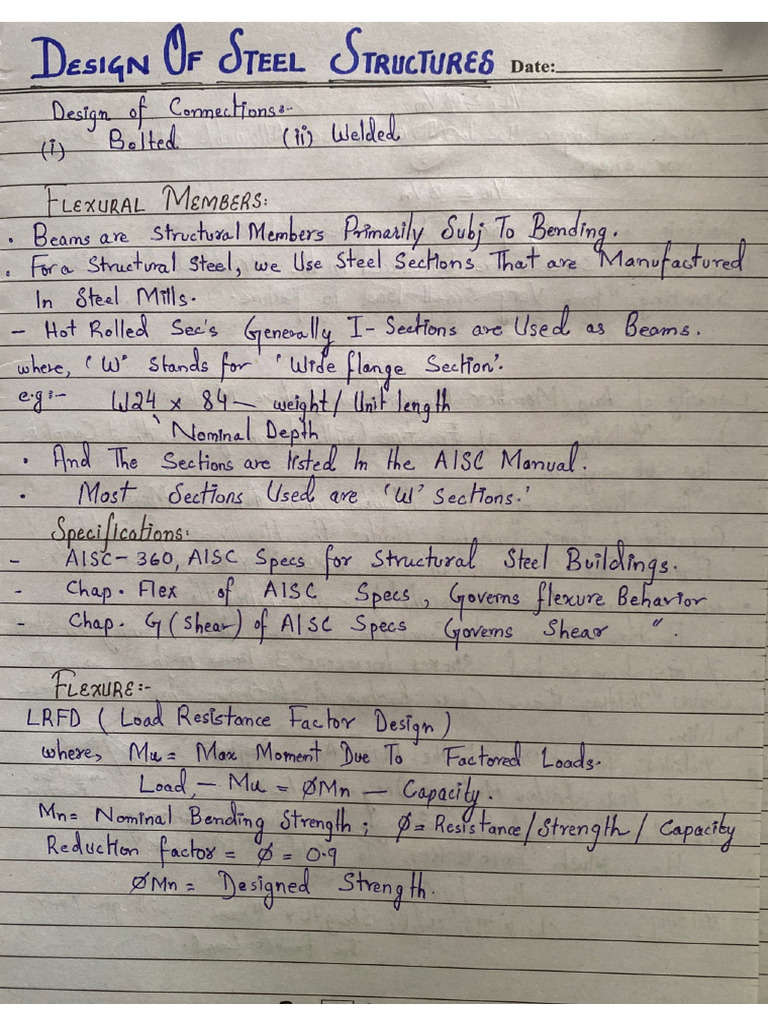 DESIGN OF STEEL STRUCTURES Date:
Design of Connections:-
(i) Bolted (ii) Welded
FLEXURAL MEMBERS:
• Beams are Structural Members Primarily Subj To Bending.
• For a Structural Steel, we Use Steel Sections That are Manufactured
In Steel Mills.
- Hot Rolled Sec's Generally I-Sections are Used as Beams.
where, 'W' Stands for 'Wide flange Section'.
e.g:- W24 x 84 — weight/Unit length
Nominal Depth
• And The Sections are listed In the AISC Manual.
• Most Sections Used are 'W' Sections.'
Specifications:
- AISC-360, AISC Specs for Structural Steel Buildings.
- Chap. Flex of AISC Specs, Governs flexure Behavior
- Chap. G (Shear) of AISC Specs Governs Shear ".
FLEXURE:-
LRFD (Load Resistance Factor Design)
where, Mu = Max Moment Due To Factored Loads.
Load, — Mu = ØMn — Capacity.
Mn = Nominal Bending Strength; Ø = Resistance/Strength/Capacity
Reduction factor = Ø = 0.9
ØMn = Designed Strength.